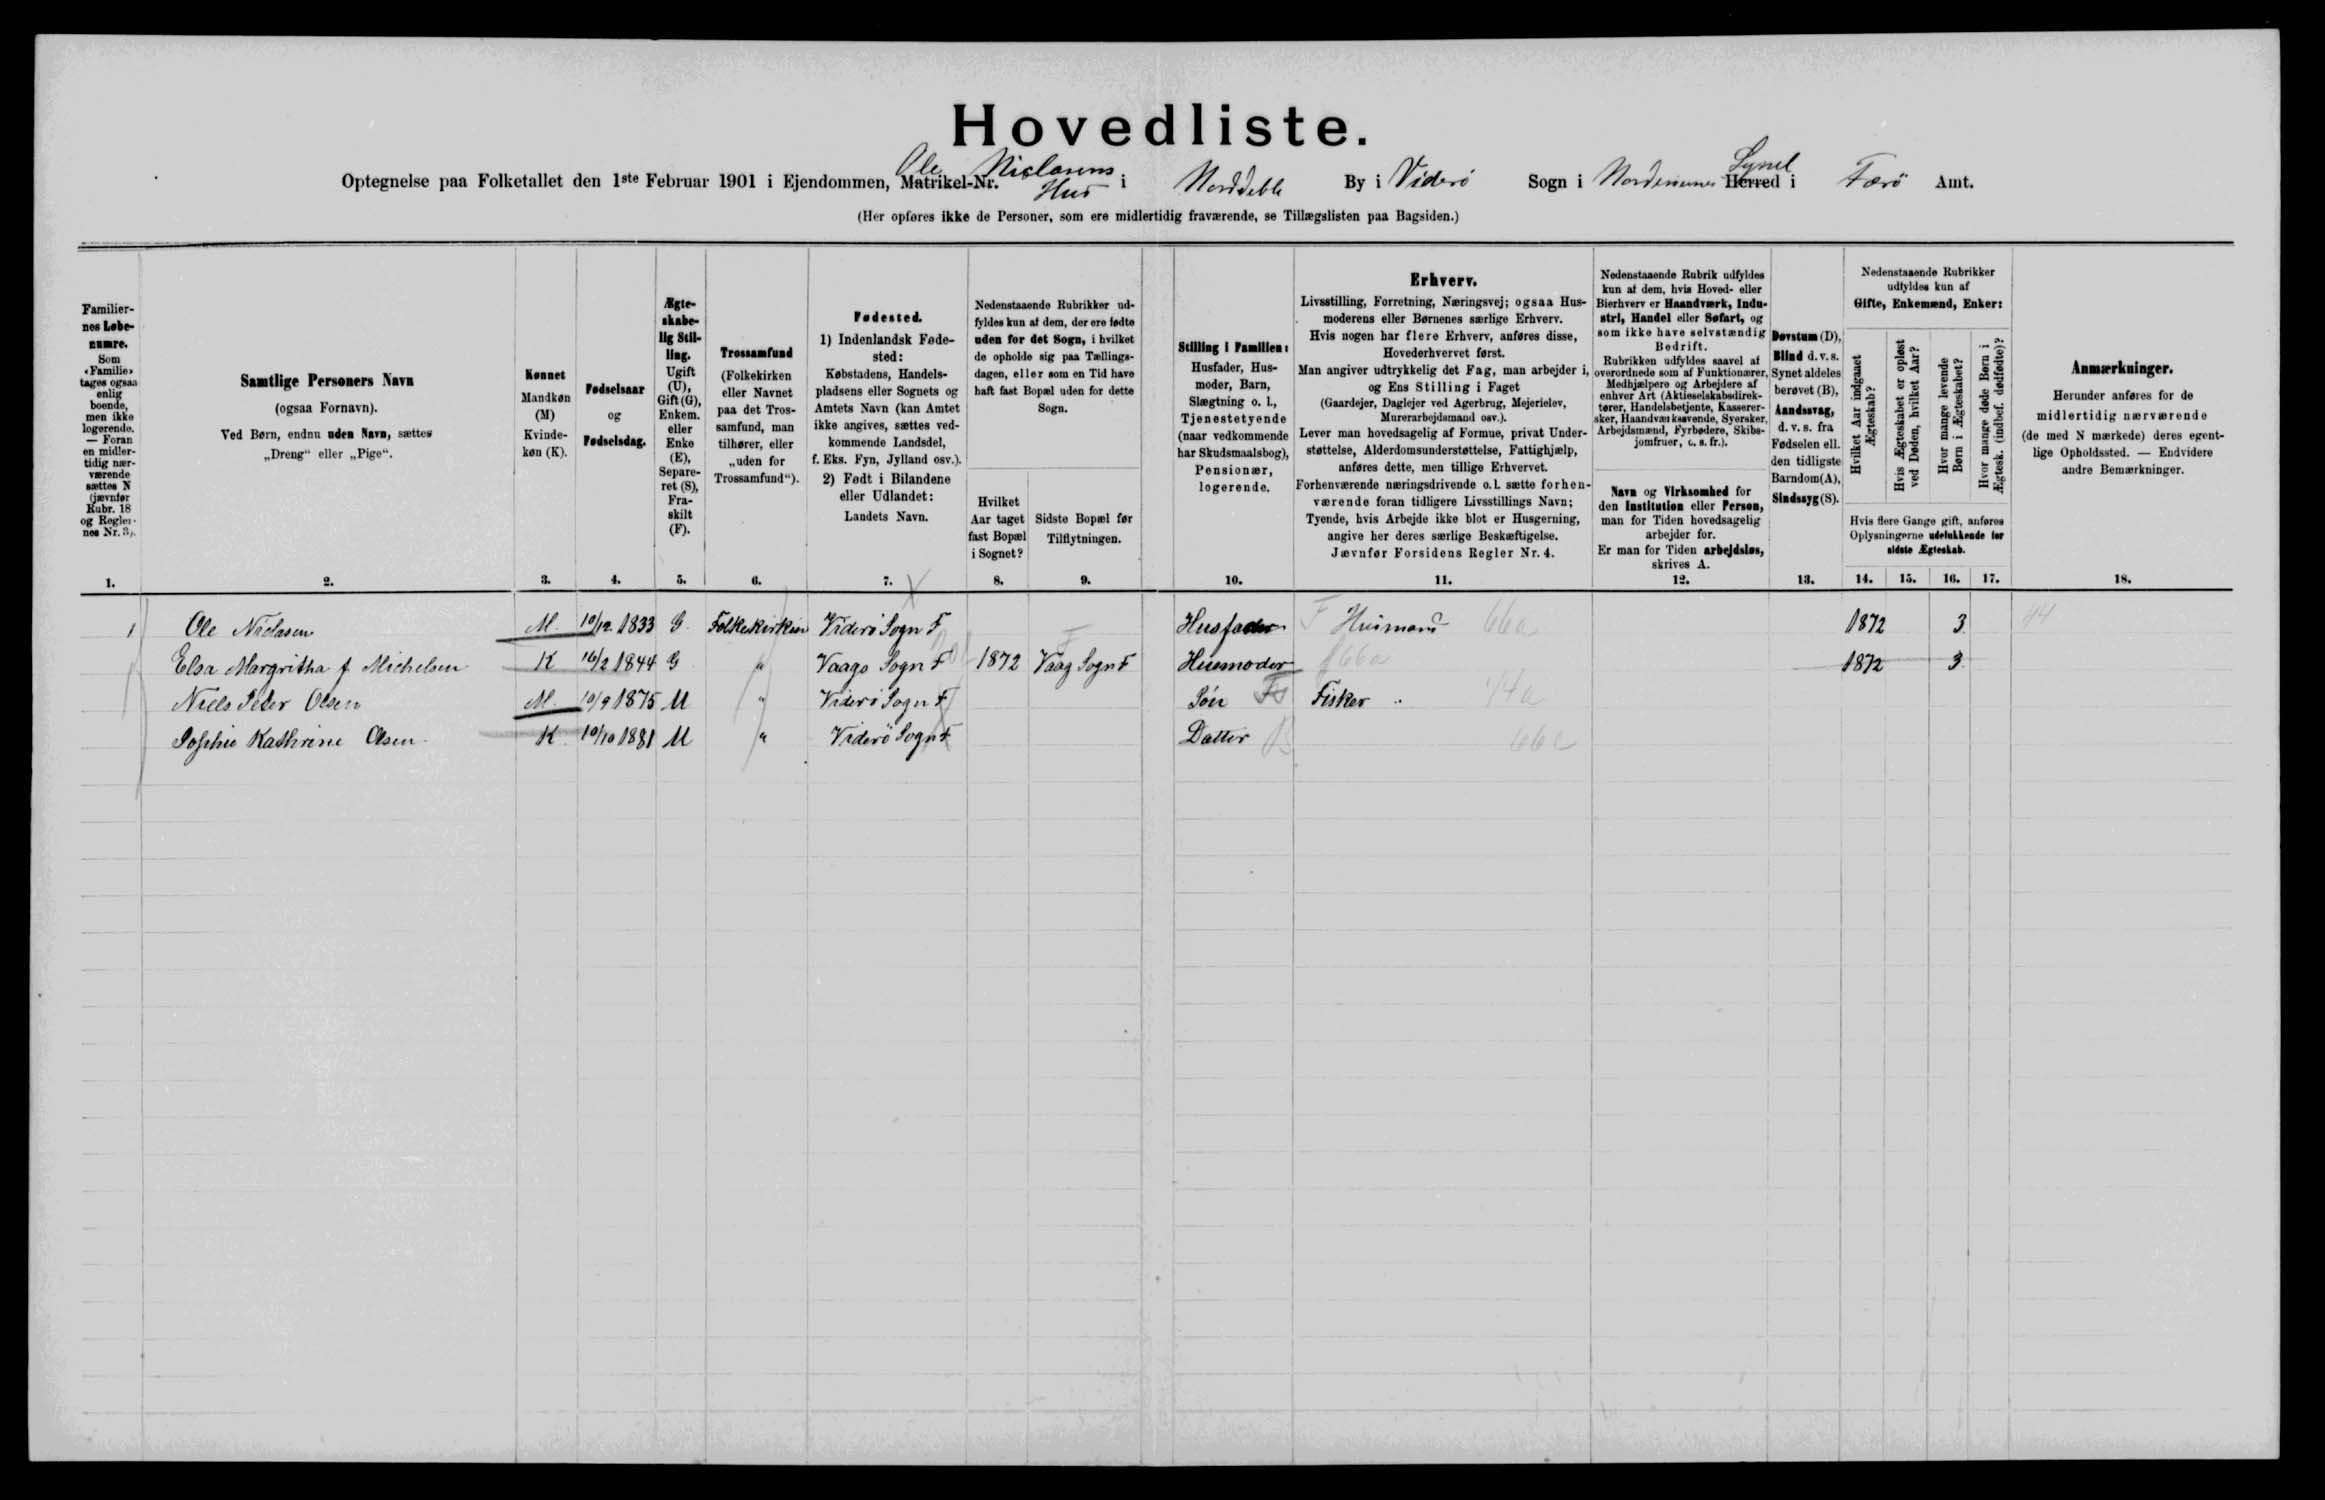 Hovedliste.
Optegnelse paa Folketallet den 1ste Februar 1901 i Ejendommen, Matrikel-Nr. Ole Niclasens Hus i Norddeble By i Viderö Sogn i Norderøernes Herred Syssel i Færö Amt.
(Her opføres ikke de Personer, som ere midlertidig fraværende, se Tillægslisten paa Bagsiden.)
Familiernes Løbenumre.
Som «Familie» tages ogsaa enlig boende, men ikke logerende. — Foran en midlertidig nærværende sættes N (jævnfør Rubr. 18 og Reglernes Nr. 3).
1.
Samtlige Personers Navn
(ogsaa Fornavn).
Ved Børn, endnu uden Navn, sættes
„Dreng“ eller „Pige“.
2.
Kønnet
Mandkøn
(M)
Kvinde-
køn (K).
3.
Fødselsaar
og
Fødselsdag.
4.
Ægte-
skabe-
lig Stil-
ling.
Ugift
(U),
Gift (G),
Enkem.
eller
Enke
(E),
Separe-
ret (S),
Fra-
skilt
(F).
5.
Trossamfund
(Folkekirken
eller Navnet
paa det Tros-
samfund, man
tilhører, eller
„uden for
Trossamfund“).
6.
Fødested.
1) Indenlandsk Føde-
sted:
Købstadens, Handels-
pladsens eller Sognets og
Amtets Navn (kan Amtet
ikke angives, sættes ved-
kommende Landsdel,
f. Eks. Fyn, Jylland osv.).
2) Født i Bilandene
eller Udlandet:
Landets Navn.
7.
Nedenstaaende Rubrikker ud-
fyldes kun af dem, der ere fødte
uden for det Sogn, i hvilket
de opholde sig paa Tællings-
dagen, eller som en Tid have
haft fast Bopæl uden for dette
Sogn.
Hvilket
Aar taget
fast Bopæl
i Sognet?
8.
Sidste Bopæl før
Tilflytningen.
9.
Stilling i Familien:
Husfader, Hus-
moder, Barn,
Slægtning o. l.,
Tjenestetyende
(naar vedkommende
har Skudsmaalsbog),
Pensionær,
logerende.
10.
Erhverv.
Livsstilling, Forretning, Næringsvej; ogsaa Hus-
moderens eller Børnenes særlige Erhverv.
Hvis nogen har flere Erhverv, anføres disse,
Hovederhvervet først.
Man angiver udtrykkelig det Fag, man arbejder i,
og Ens Stilling i Faget
(Gaardejer, Daglejer ved Agerbrug, Mejerielev,
Murerarbejdsmand osv.).
Lever man hovedsagelig af Formue, privat Under-
støttelse, Alderdomsunderstøttelse, Fattighjælp,
anføres dette, men tillige Erhvervet.
Forhenværende næringsdrivende o. l. sætte forhen-
værende foran tidligere Livsstillings Navn;
Tyende, hvis Arbejde ikke blot er Husgerning,
angive her deres særlige Beskæftigelse.
Jævnfør Forsidens Regler Nr. 4.
11.
Nedenstaaende Rubrik udfyldes
kun af dem, hvis Hoved- eller
Bierhverv er Haandværk, Indu-
stri, Handel eller Søfart, og
som ikke have selvstændig
Bedrift.
Rubrikken udfyldes saavel af
overordnede som af Funktionærer,
Medhjælpere og Arbejdere af
enhver Art (Aktieselskabsdirek-
tører, Handelsbetjente, Kasserer-
sker, Haandværkssvende, Syersker,
Arbejdsmænd, Fyrbødere, Skibs-
jomfruer, o. s. fr.).
Navn og Virksomhed for
den Institution eller Person,
man for Tiden hovedsagelig
arbejder for.
Er man for Tiden arbejdsløs,
skrives A.
12.
Døvstum (D),
Blind d. v. s.
Synet aldeles
berøvet (B),
Aandssvag,
d. v. s. fra
Fødselen ell.
den tidligste
Barndom (A),
Sindssyg (S).
13.
Nedenstaaende Rubrikker
udfyldes kun af
Gifte, Enkemænd, Enker:
Hvilket Aar indgaaet Ægteskab?
Hvis Ægteskabet er opløst ved Døden, hvilket Aar?
Hvor mange levende Børn i Ægteskabet?
Hvor mange døde Børn i Ægtesk. (indbef. dødfødte)?
Hvis flere Gange gift, anføres
Oplysningerne udelukkende for
sidste Ægteskab.
14. 15. 16. 17.
Anmærkninger.
Herunder anføres for de
midlertidig nærværende
(de med N mærkede) deres egent-
lige Opholdssted. — Endvidere
andre Bemærkninger.
18.
1 Ole Niclasen M. 10/12 1833 G. Folkekirken Viderö Sogn F Husfader F Husmand 66a 1872 3 44
Elsa Margritha f. Michelsen K 16/2 1844 G " Vaags Sogn F 1872 Vaag Sogn F Husmoder 66a 1872 3
Niels Peter Olsen M. 10/9 1875 U " Viderö Sogn F Sön Fisker
Sophie Kathrine Olsen K 10/10 1881 U " Viderö Sogn F Datter B 66c